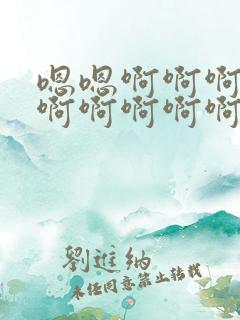 嗯嗯啊啊啊
啊啊啊啊啊
劉進納
未经同意禁止转载